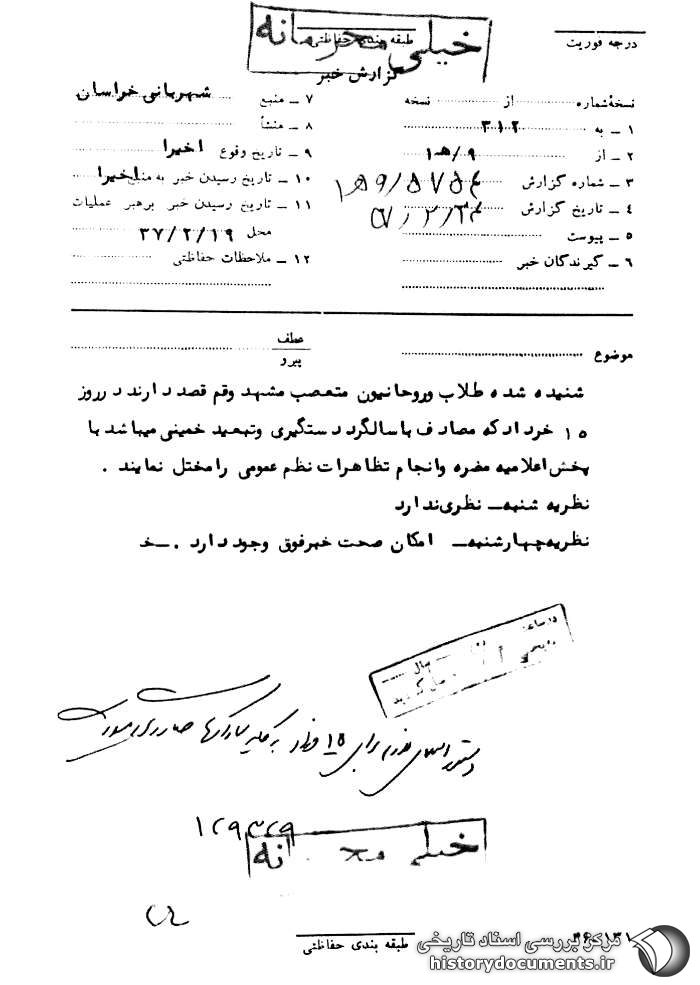 خیلی محرمانه
طبقه بندی حفاظتی
درجه فوریت
گزارش خبر
نسخهٔ شماره ........ از ........ نسخه
۱ ــ به ۳۱۲
۲ ــ از ۹/هـ۱
۳ ــ شماره گزارش
۴ ــ تاریخ گزارش
۵ ــ پیوست
۶ ــ گیرندگان خبر
۷ ــ منبع شهربانی خراسان
۸ ــ منشأ
۹ ــ تاریخ وقوع اخیرا
۱۰ ــ تاریخ رسیدن خبر به منبع اخیرا
۱۱ ــ تاریخ رسیدن خبر برهبر عملیات
محل ۳۷/۲/۱۹
۱۲ ــ ملاحظات حفاظتی
موضوع
عطف
پیرو
شنیده شده طلاب وروحانیون متعصب مشهد وقم قصد دارند درروز
۱۵ خرداد که مصادف باسالگرد دستگیری وتبعید خمینی میباشد با
پخش اعلامیه مضره وانجام تظاهرات نظم عمومی رامختل نمایند .
نظریه شنبه ــ نظری ندارد
نظریه چهارشنبه ــ امکان صحت خبرفوق وجود دارد . ــ خـ
سال
برای ۱۵ خرداد به کلیه ساواکها
خیلی محرمانه
طبقه بندی حفاظتی
مرکز بررسی اسناد تاریخی
historydocuments.ir